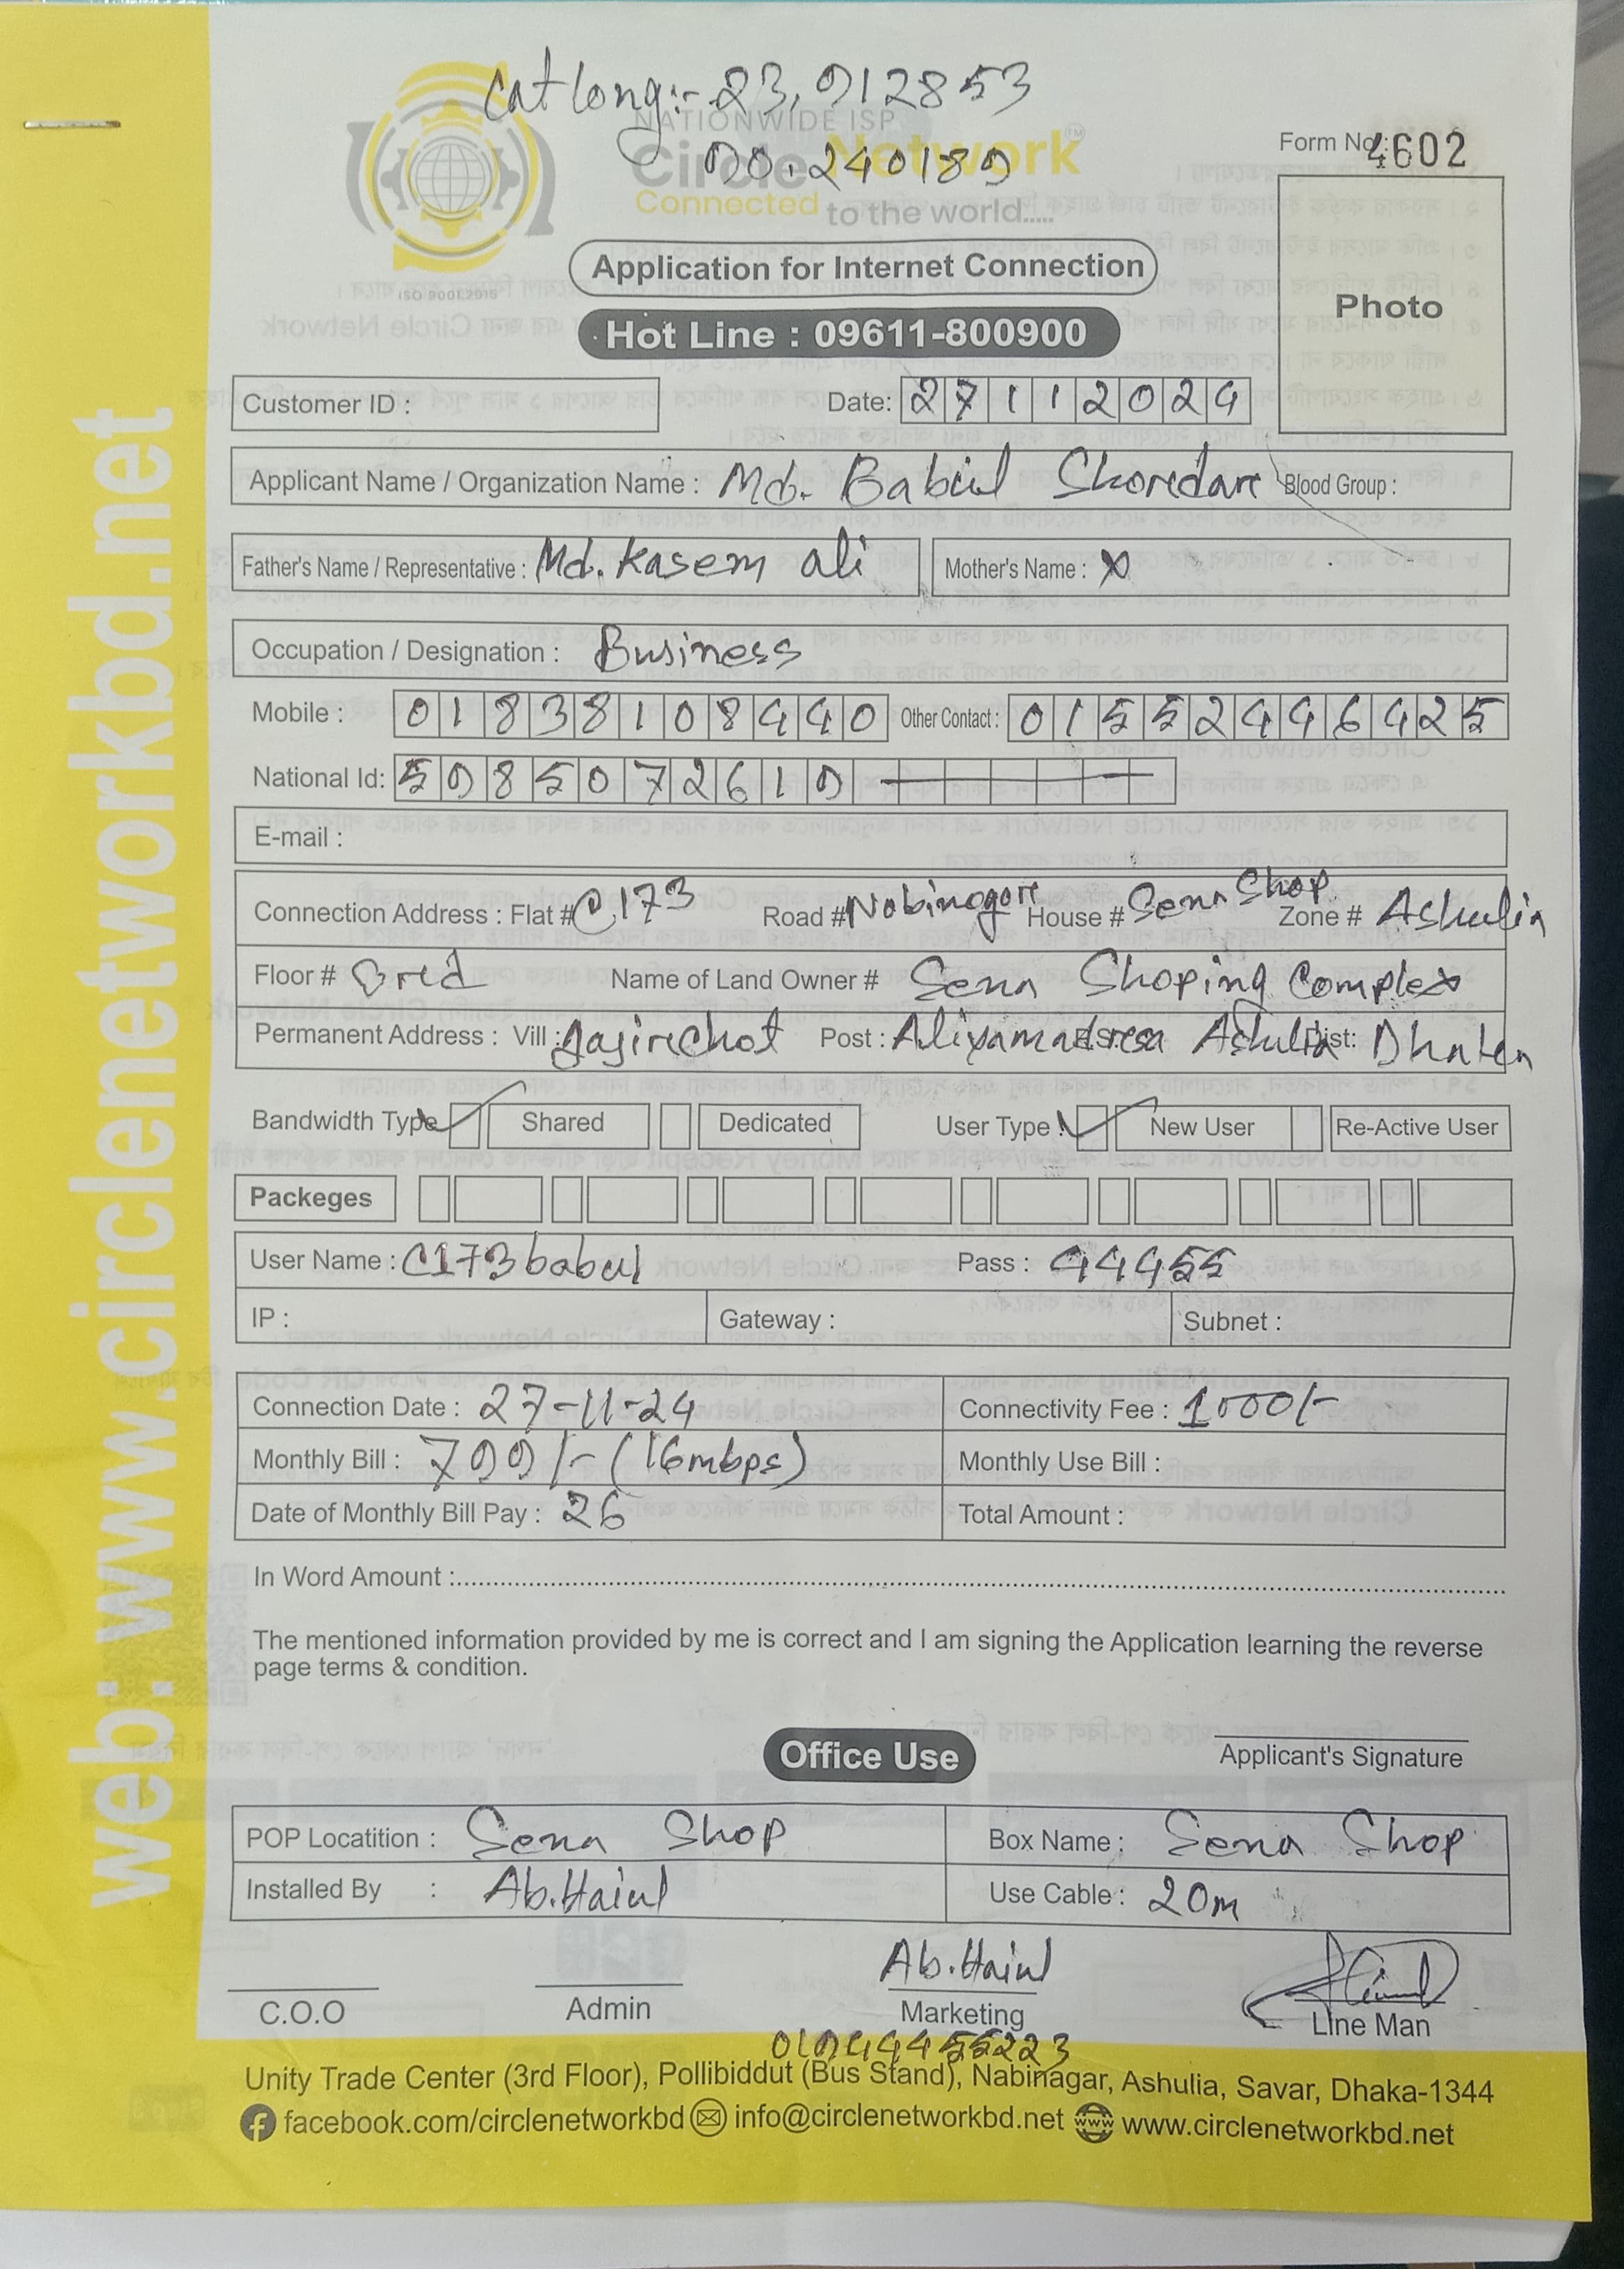 Cat long:- 23.912853
90.240189
NATIONWIDE ISP
Circle Network™
Connected to the world.....
ISO 9001:2015
Form No: 4602
Application for Internet Connection
Hot Line : 09611-800900
Photo
Customer ID :
Date: 27112024
Applicant Name / Organization Name : Md. Babul Shoredare Blood Group :
Father's Name / Representative : Md. Kasem ali Mother's Name : x
Occupation / Designation : Business
Mobile : 01838108440 Other Contact : 01552446425
National Id: 5985072619
E-mail :
Connection Address : Flat # C,173 Road # Nobinogore House # Sena Shop Zone # Ashulia
Floor # 3rd Name of Land Owner # Sena Shoping Complex
Permanent Address : Vill : Gajirechot Post : Aliyamadsresa Ashulia Dist: Dhaka
Bandwidth Type Shared Dedicated User Type : New User Re-Active User
Packeges
User Name : C173babul Pass : 44455
IP : Gateway : Subnet :
Connection Date : 27-11-24 Connectivity Fee : 1000/-
Monthly Bill : 799/- (16mbps) Monthly Use Bill :
Date of Monthly Bill Pay : 26 Total Amount :
In Word Amount :
The mentioned information provided by me is correct and I am signing the Application learning the reverse
page terms & condition.
Office Use
Applicant's Signature
POP Locatition : Sena Shop Box Name : Sena Shop
Installed By : Ab.Haiul Use Cable : 20m
Ab.Haiul
C.O.O Admin Marketing Line Man
01944455223
Unity Trade Center (3rd Floor), Pollibiddut (Bus Stand), Nabinagar, Ashulia, Savar, Dhaka-1344
facebook.com/circlenetworkbd info@circlenetworkbd.net www.circlenetworkbd.net
web: www.circlenetworkbd.net